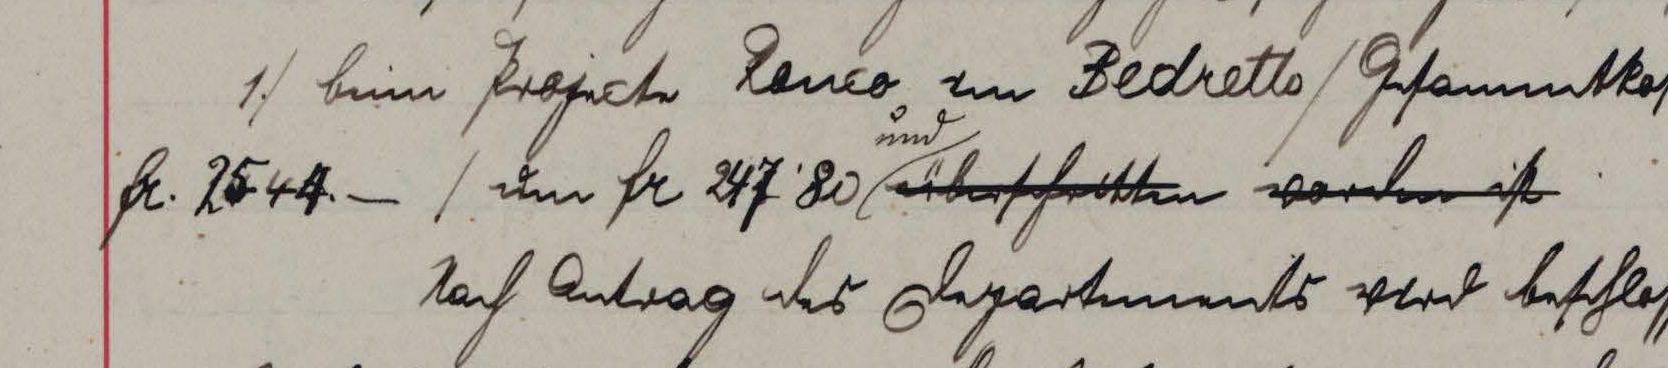 1./ beim Projecte Ronco im Bedretto / Gesammtkos
und
fr. 2544.— / um fr 247'80 überschritten worden ist
Nach Antrag des Departements wird beschlos